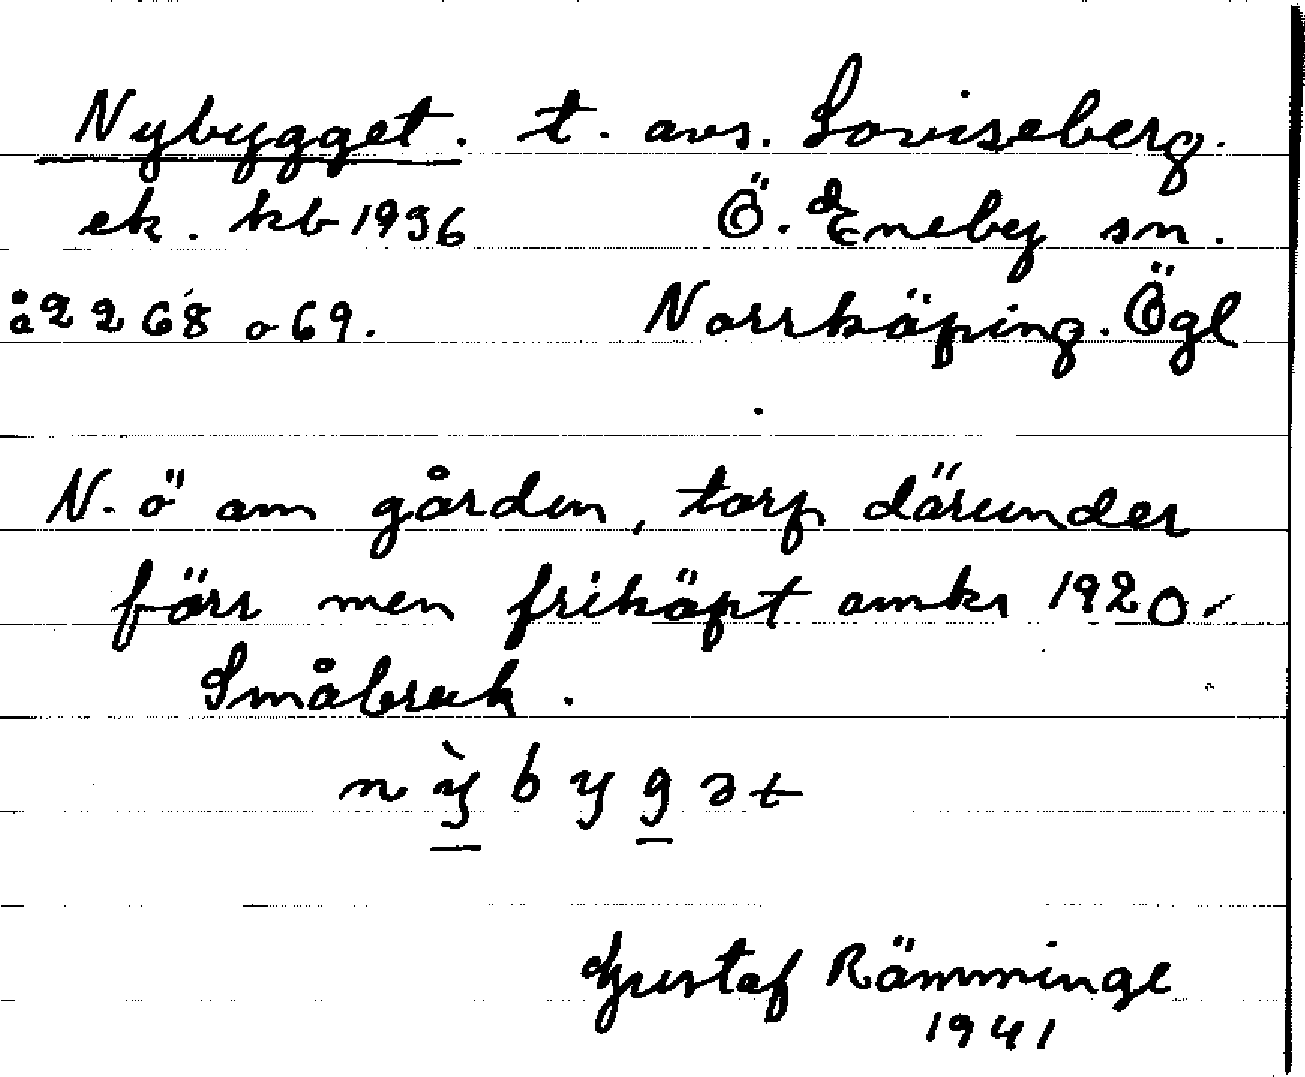 Nybygget. t. avs. Loviseberg.
ek. kb 1936 Ö. Eneby sn.
å 2 2 68 o 69. Norrköping. Ögl
N. ö om gården, torp därunder
förr men friköpt omkr 1920.
Småbruk.
nỳbygət
Gustaf Rämminge
1941